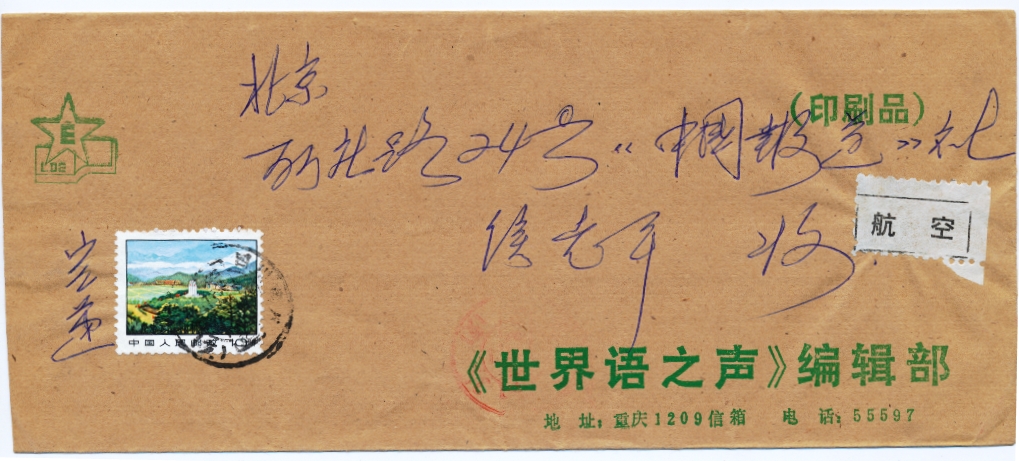 北京
(印刷品)
百万庄路24号《中国报道》社
侯志平 收
航 空
E
中国人民邮政
《世界语之声》编辑部
地 址：重庆1209信箱 电 话：55597